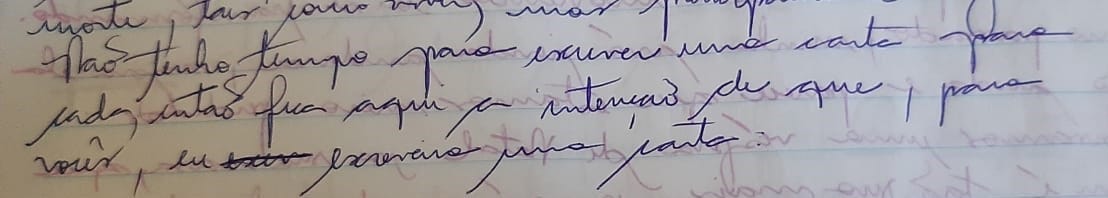 morte, tais como
Não tenho tempo para escrever uma carta para
cada, então fica aqui a intenção de que, para
vocês, eu escreveria uma carta.